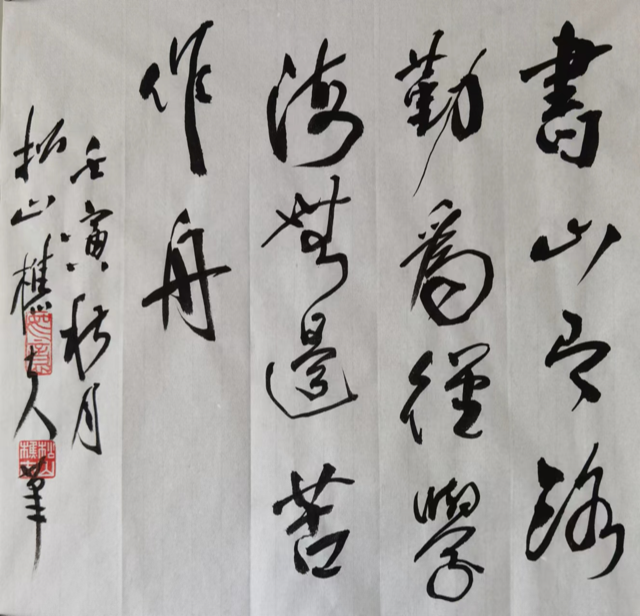 書山有路
勤為徑學
海無邊苦
作舟
壬寅秋月
松山樵夫筆